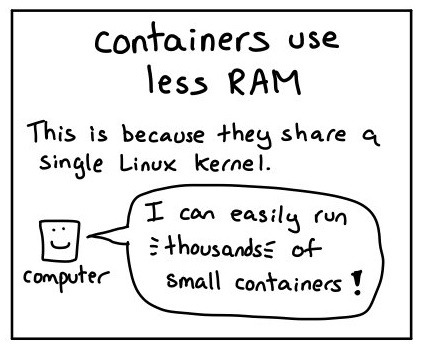 containers use
less RAM
This is because they share a
single Linux kernel.
I can easily run
thousands of
small containers!
computer